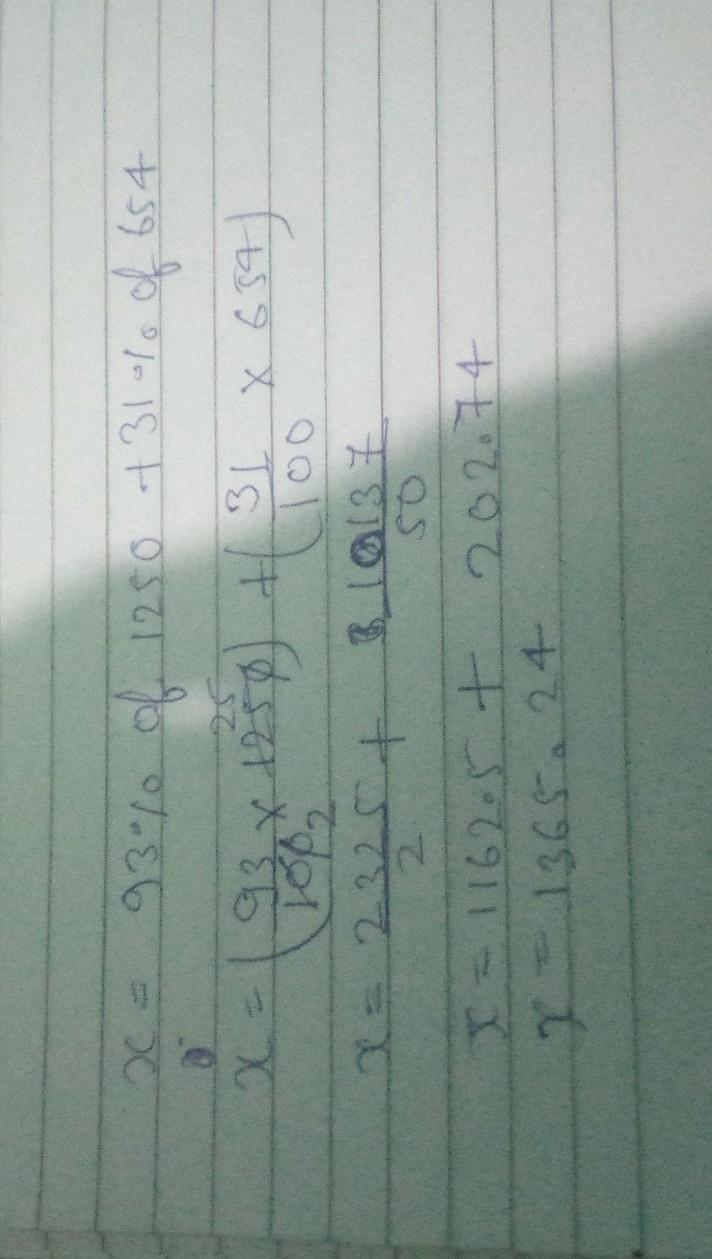 x = 93% of 1250 + 31% of 654
x = (93/100 2 × 1250 25) + (31/100 × 654)
x = 2325/2 + 10137/50
x = 1162.5 + 202.74
x = 1365.24